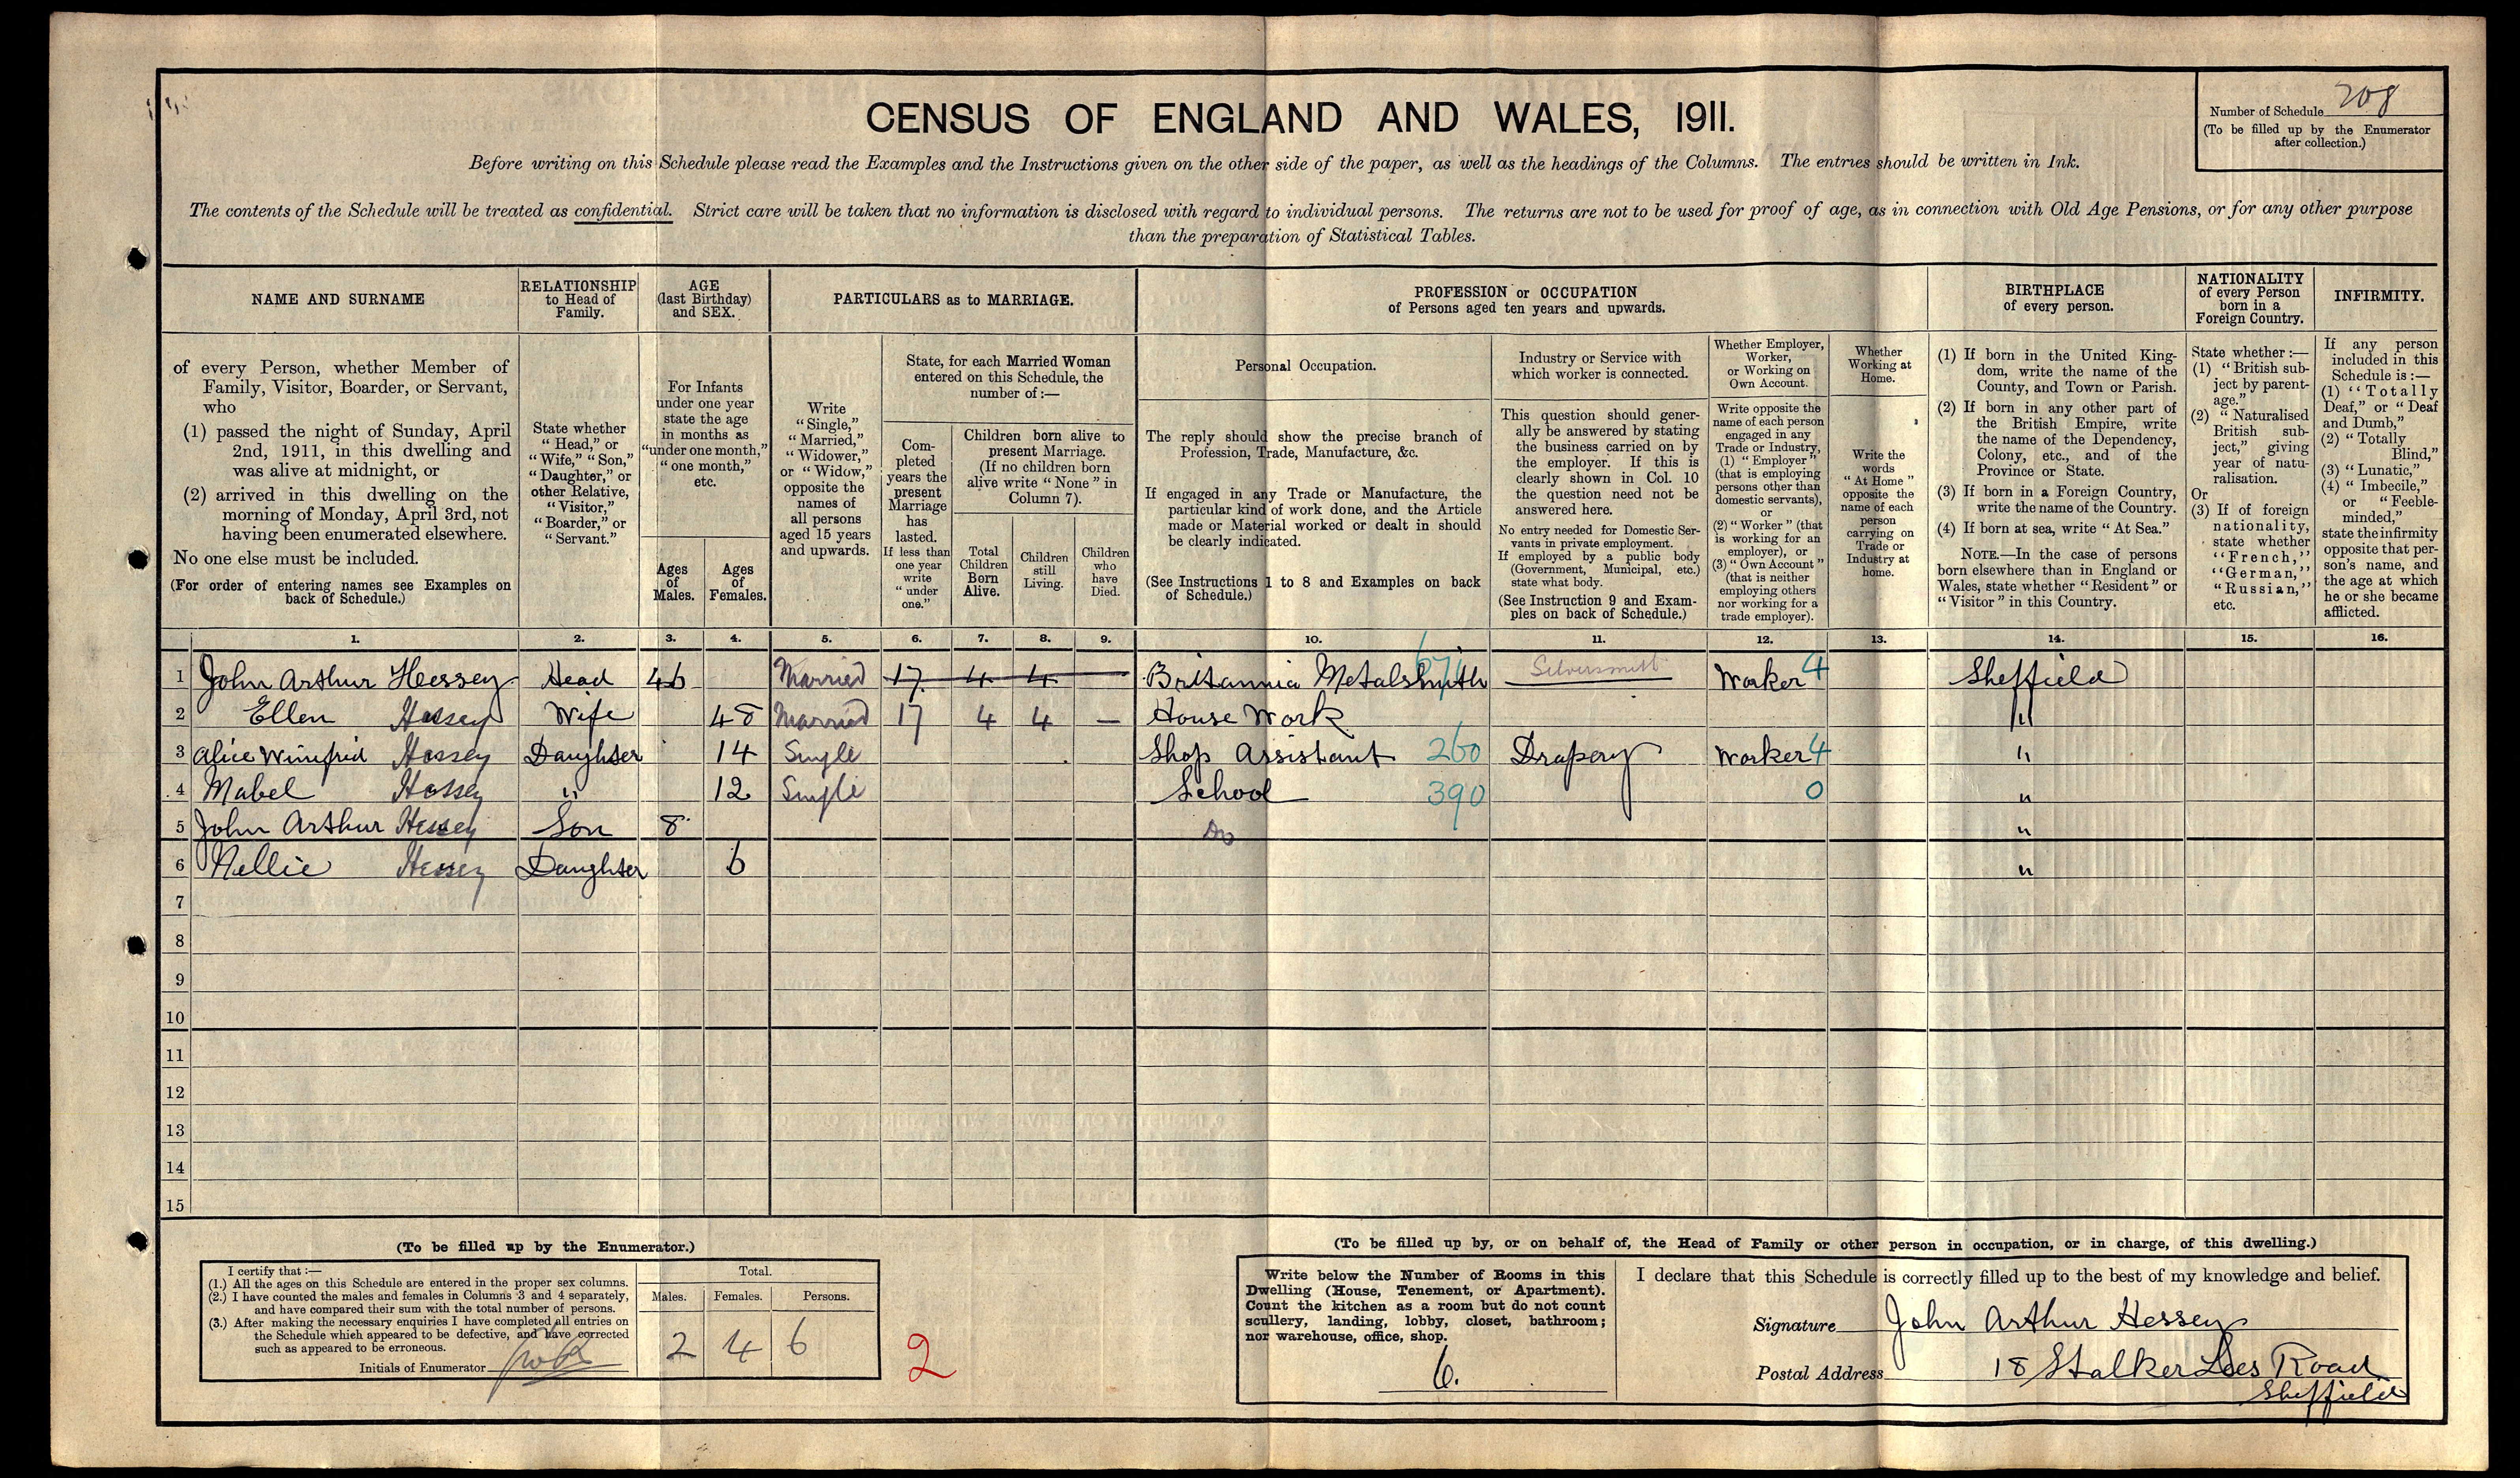 CENSUS OF ENGLAND AND WALES, 1911.
Number of Schedule 208
(To be filled up by the Enumerator
after collection.)
Before writing on this Schedule please read the Examples and the Instructions given on the other side of the paper, as well as the headings of the Columns. The entries should be written in Ink.
The contents of the Schedule will be treated as confidential. Strict care will be taken that no information is disclosed with regard to individual persons. The returns are not to be used for proof of age, as in connection with Old Age Pensions, or for any other purpose
than the preparation of Statistical Tables.
NAME AND SURNAME
of every Person, whether Member of
Family, Visitor, Boarder, or Servant,
who
(1) passed the night of Sunday, April
2nd, 1911, in this dwelling and
was alive at midnight, or
(2) arrived in this dwelling on the
morning of Monday, April 3rd, not
having been enumerated elsewhere.
No one else must be included.
(For order of entering names see Examples on
back of Schedule.)
RELATIONSHIP
to Head of
Family.
State whether
"Head," or
"Wife," "Son,"
"Daughter," or
other Relative,
"Visitor,"
"Boarder," or
"Servant."
AGE
(last Birthday)
and SEX.
For Infants
under one year
state the age
in months as
"under one month,"
"one month,"
etc.
Ages
of
Males.
Ages
of
Females.
PARTICULARS as to MARRIAGE.
Write
"Single,"
"Married,"
"Widower,"
or "Widow,"
opposite the
names of
all persons
aged 15 years
and upwards.
State, for each Married Woman
entered on this Schedule, the
number of:—
Com-
pleted
years the
present
Marriage
has
lasted.
If less than
one year
write
"under
one."
Children born alive to
present Marriage.
(If no children born
alive write "None" in
Column 7).
Total
Children
Born
Alive.
Children
still
Living.
Children
who
have
Died.
PROFESSION or OCCUPATION
of Persons aged ten years and upwards.
Personal Occupation.
The reply should show the precise branch of
Profession, Trade, Manufacture, &c.
If engaged in any Trade or Manufacture, the
particular kind of work done, and the Article
made or Material worked or dealt in should
be clearly indicated.
(See Instructions 1 to 8 and Examples on back
of Schedule.)
Industry or Service with
which worker is connected.
This question should gener-
ally be answered by stating
the business carried on by
the employer. If this is
clearly shown in Col. 10
the question need not be
answered here.
No entry needed for Domestic Ser-
vants in private employment.
If employed by a public body
(Government, Municipal, etc.)
state what body.
(See Instruction 9 and Exam-
ples on back of Schedule.)
Whether Employer,
Worker,
or Working on
Own Account.
Write opposite the
name of each person
engaged in any
Trade or Industry,
(1) "Employer"
(that is employing
persons other than
domestic servants),
or
(2) "Worker" (that
is working for an
employer), or
(3) "Own Account"
(that is neither
employing others
nor working for a
trade employer).
Whether
Working at
Home.
Write the
words
"At Home"
opposite the
name of each
person
carrying on
Trade or
Industry at
home.
BIRTHPLACE
of every person.
(1) If born in the United King-
dom, write the name of the
County, and Town or Parish.
(2) If born in any other part of
the British Empire, write
the name of the Dependency,
Colony, etc., and of the
Province or State.
(3) If born in a Foreign Country,
write the name of the Country.
(4) If born at sea, write "At Sea."
NOTE.—In the case of persons
born elsewhere than in England or
Wales, state whether "Resident" or
"Visitor" in this Country.
NATIONALITY
of every Person
born in a
Foreign Country.
State whether:—
(1) "British sub-
ject by parent-
age."
(2) "Naturalised
British sub-
ject," giving
year of natu-
ralisation.
Or
(3) If of foreign
nationality,
state whether
"French,"
"German,"
"Russian,"
etc.
INFIRMITY.
If any person
included in this
Schedule is:—
(1) "Totally
Deaf," or "Deaf
and Dumb,"
(2) "Totally
Blind,"
(3) "Lunatic,"
(4) "Imbecile,"
or "Feeble-
minded,"
state the infirmity
opposite that per-
son's name, and
the age at which
he or she became
afflicted.
1. 2. 3. 4. 5. 6. 7. 8. 9. 10. 11. 12. 13. 14. 15. 16.
1 John Arthur Hessey Head 46 Married 17 4 4 Britannia Metalsmith Silversmith Worker 4 Sheffield
2 Ellen Hessey Wife 48 Married 17 4 4 — House Work "
3 Alice Winifrid Hessey Daughter 14 Single Shop Assistant 260 Drapery Worker 4 "
4 Mabel Hessey " 12 Single School 390 0 "
5 John Arthur Hessey Son 8 Do "
6 Nellie Hessey Daughter 6 "
7
8
9
10
11
12
13
14
15
(To be filled up by the Enumerator.)
I certify that:—
(1.) All the ages on this Schedule are entered in the proper sex columns.
(2.) I have counted the males and females in Columns 3 and 4 separately,
and have compared their sum with the total number of persons.
(3.) After making the necessary enquiries I have completed all entries on
the Schedule which appeared to be defective, and have corrected
such as appeared to be erroneous.
Initials of Enumerator
Total.
Males. Females. Persons.
2 4 6
2
(To be filled up by, or on behalf of, the Head of Family or other person in occupation, or in charge, of this dwelling.)
Write below the Number of Rooms in this
Dwelling (House, Tenement, or Apartment).
Count the kitchen as a room but do not count
scullery, landing, lobby, closet, bathroom;
nor warehouse, office, shop.
6.
I declare that this Schedule is correctly filled up to the best of my knowledge and belief.
Signature John Arthur Hessey
Postal Address 18 Stalker Lees Road
Sheffield